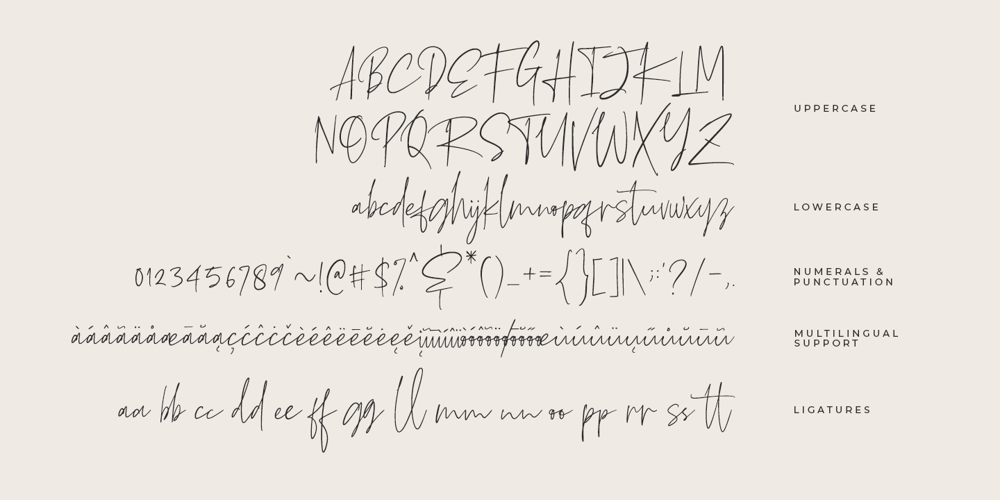 ABCDEFGHIJKLM
NOPQRSTUVWXYZ
UPPERCASE
abcdefghijklmnopqrstuvwxyz
LOWERCASE
0123456789`~!@#$%^&*()_+={}[]|\;:'?/-,.
NUMERALS &
PUNCTUATION
MULTILINGUAL
SUPPORT
aa bb cc dd ee ff gg ll mm nn oo pp rr ss tt
LIGATURES